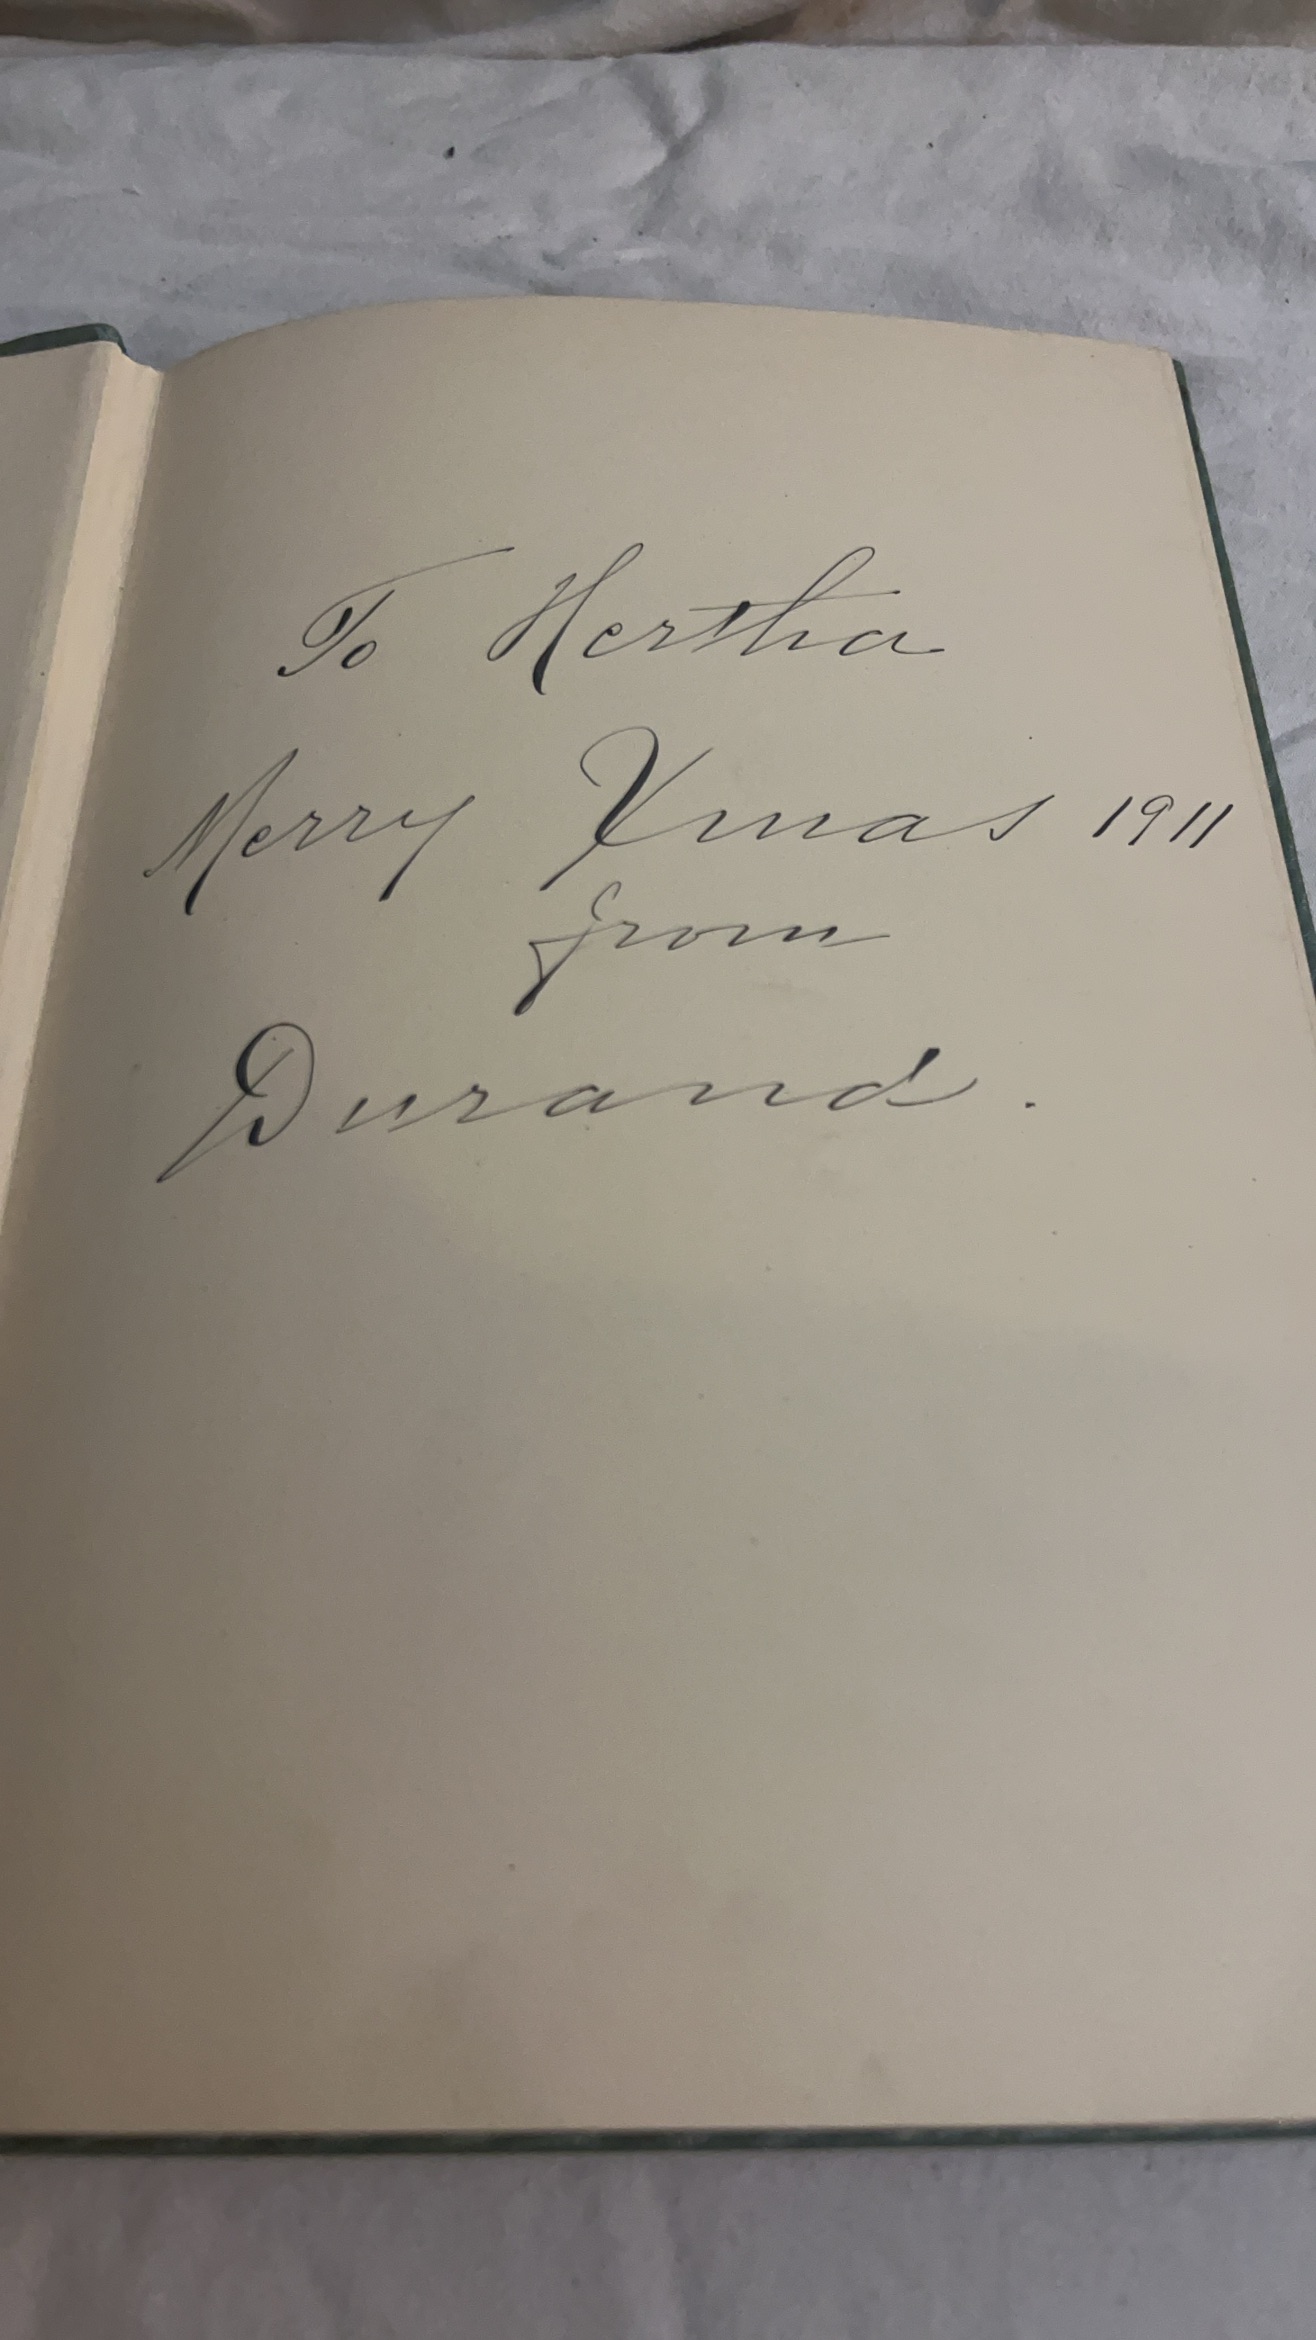 To Hertha
Merry Xmas 1911
from
Durand.